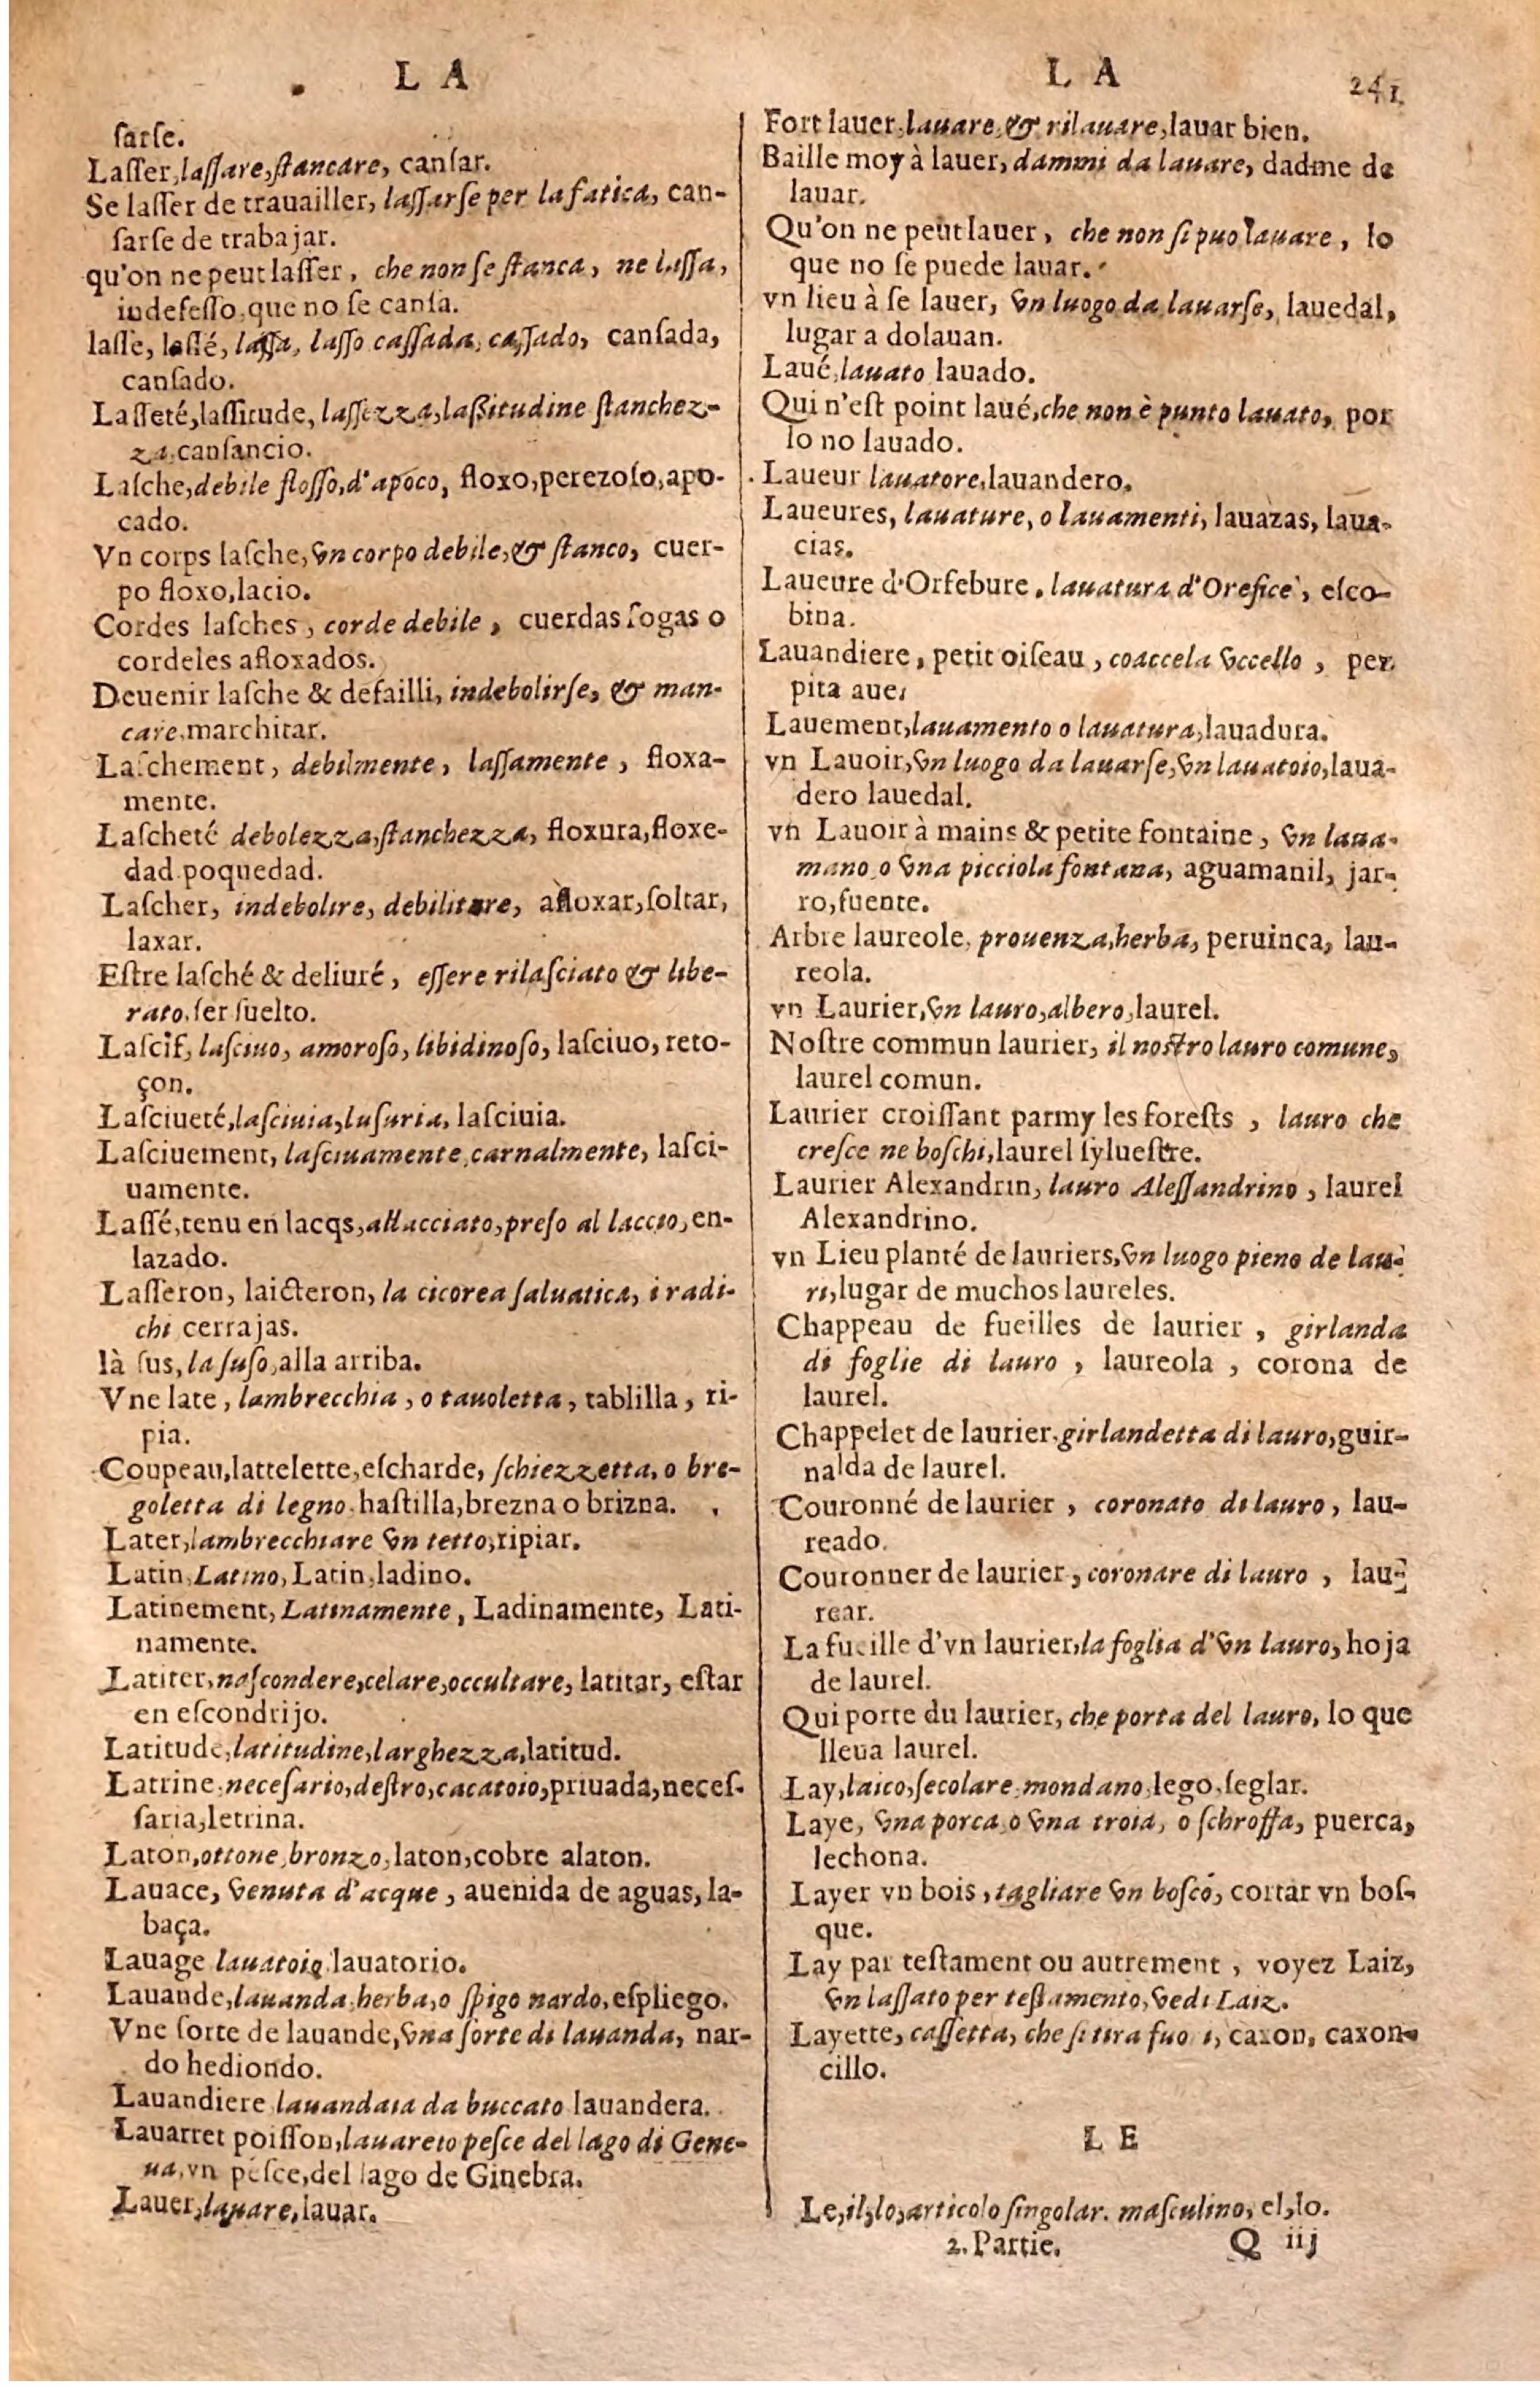 L A
ſarſe.
Laſſer, laſſare, ſtancare, canſar.
Se laſſer de trauailler, laſſarſe per la fatica, can-
ſarſe de trabajar.
qu'on ne peut laſſer, che non ſe ſtanca, ne laſſa,
indefeſſo, que no ſe canſa.
laſſe, laſſé, laſſa, laſſo caſſada, caſſado, canſada,
canſado.
Laſſeté, laſſitude, laſſezza, laßitudine ſtanchez-
za, canſancio.
Laſche, debile floſſo, d'apoco, floxo, perezoſo, apo-
cado.
Vn corps laſche, vn corpo debile, & ſtanco, cuer-
po floxo, lacio.
Cordes laſches, corde debile, cuerdas ſogas o
cordeles afloxados.
Deuenir laſche & defailli, indebolirſe, & man-
care, marchitar.
Laſchement, debilmente, laſſamente, floxa-
mente.
Laſcheté debolezza, ſtanchezza, floxura, floxe-
dad poquedad.
Laſcher, indebolire, debilitare, afloxar, ſoltar,
laxar.
Eſtre laſché & deliuré, eſſere rilaſciato & libe-
rato, ſer ſuelto.
Laſcif, laſciuo, amoroſo, libidinoſo, laſciuo, reto-
çon.
Laſciueté, laſciuia, luſuria, laſciuia.
Laſciuement, laſciuamente, carnalmente, laſci-
uamente.
Laſſé, tenu en lacqs, allacciato, preſo al laccio, en-
lazado.
Laſſeron, laicteron, la cicorea ſaluatica, i radi-
chi cerrajas.
là ſus, la ſuſo, alla arriba.
Vne late, lambrecchia, o tauoletta, tablilla, ri-
pia.
Coupeau, lattelette, eſcharde, ſchiezzetta, o bre-
goletta di legno, haſtilla, brezna o brizna.
Later, lambrecchiare vn tetto, ripiar.
Latin, Latino, Latin, ladino.
Latinement, Latinamente, Ladinamente, Lati-
namente.
Latiter, naſcondere, celare, occultare, latitar, eſtar
en eſcondrijo.
Latitude, latitudine, larghezza, latitud.
Latrine neceſario, deſtro, cacatoio, priuada, neceſ-
ſaria, letrina.
Laton, ottone, bronzo, laton, cobre alaton.
Lauace, venuta d'acque, auenida de aguas, la-
baça.
Lauage lauatoio lauatorio.
Lauande, lauanda, herba, o ſpigo nardo, eſpliego.
Vne ſorte de lauande, vna ſorte di lauanda, nar-
do hediondo.
Lauandiere lauandaia da buccato lauandera.
Lauarret poiſſon, lauareto peſce del lago di Gene-
ua, vn peſce, del lago de Ginebra.
Lauer, lauare, lauar.
L A
241
Fort lauer, lauare, & rilauare, lauar bien.
Baille moy à lauer, dammi da lauare, dadme de
lauar.
Qu'on ne peut lauer, che non ſi puo lauare, lo
que no ſe puede lauar.
vn lieu à ſe lauer, vn luogo da lauarſe, lauedal,
lugar a dolauan.
Laué, lauato lauado.
Qui n'eſt point laué, che non è punto lauato, por
lo no lauado.
Laueur lauatore, lauandero.
Laueures, lauature, o lauamenti, lauazas, laua-
cias.
Laueure d'Orfebure, lauatura d'Orefice, eſco-
bina.
Lauandiere, petit oiſeau, coaccela vccello, per
pita aue,
Lauement, lauamento o lauatura, lauadura.
vn Lauoir, vn luogo da lauarſe, vn lauatoio, laua-
dero lauedal.
vn Lauoir à mains & petite fontaine, vn laua-
mano, o vna picciola fontana, aguamanil, jar-
ro, fuente.
Arbre laureole, prouenza, herba, peruinca, lau-
reola.
vn Laurier, vn lauro, albero, laurel.
Noſtre commun laurier, il noſtro lauro comune,
laurel comun.
Laurier croiſſant parmy les foreſts, lauro che
creſce ne boſchi, laurel ſylueſtre.
Laurier Alexandrin, lauro Aleſſandrino, laurel
Alexandrino.
vn Lieu planté de lauriers, vn luogo pieno de lau-
ri, lugar de muchos laureles.
Chappeau de fueilles de laurier, girlanda
di foglie di lauro, laureola, corona de
laurel.
Chappelet de laurier, girlandetta di lauro, guir-
nalda de laurel.
Couronné de laurier, coronato di lauro, lau-
reado.
Couronner de laurier, coronare di lauro, lau-
rear.
La fueille d'vn laurier, la foglia d'vn lauro, hoja
de laurel.
Qui porte du laurier, che porta del lauro, lo que
lleua laurel.
Lay, laico, ſecolare, mondano, lego, ſeglar.
Laye, vna porca o vna troia, o ſchroffa, puerca,
lechona.
Layer vn bois, tagliare vn boſco, cortar vn boſ-
que.
Lay par teſtament ou autrement, voyez Laiz,
vn laſſato per teſtamento, vedi Laiz.
Layette, caſſetta, che ſi tira fuo i, caxon, caxon-
cillo.
L E
Le, il, lo, articolo ſingolar. maſculino, el, lo.
2. Partie. Q iij